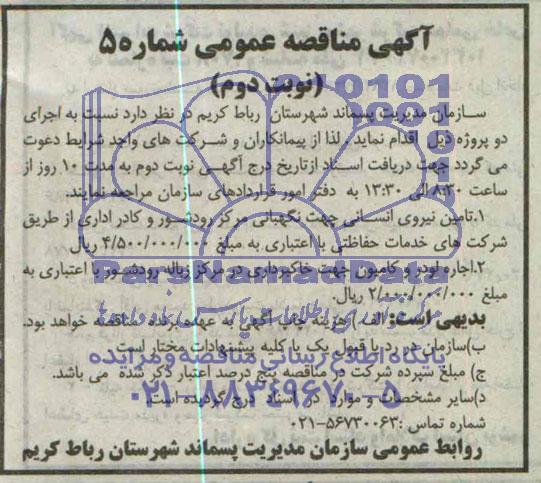 آگهی مناقصه عمومی شماره ۵
(نوبت دوم)
سازمان مدیریت پسماند شهرستان رباط کریم در نظر دارد نسبت به اجرای
دو پروژه ذیل اقدام نماید. لذا از پیمانکاران و شرکت های واجد شرایط دعوت
می گردد جهت دریافت اسناد از تاریخ درج آگهی نوبت دوم به مدت ۱۰ روز از
ساعت ۸:۳۰ الی ۱۳:۳۰ به دفتر امور قراردادهای سازمان مراجعه نمایند.
۱.تامین نیروی انسانی جهت نگهبانی مرکز رودشور و کادر اداری از طریق
شرکت های خدمات حفاظتی با اعتباری به مبلغ ۴/۵۰۰/۰۰۰/۰۰۰ ریال
۲.اجاره لودر و کامیون جهت خاکبرداری در مرکز زباله رودشور با اعتباری به
مبلغ ۲/۰۰۰/۰۰۰/۰۰۰ ریال.
بدیهی است: الف) هزینه چاپ آگهی به عهده برنده مناقصه خواهد بود.
ب)سازمان در رد یا قبول یک یا کلیه پیشنهادات مختار است
ج) مبلغ سپرده شرکت در مناقصه پنج درصد اعتبار ذکر شده می باشد.
د)سایر مشخصات و موارد در اسناد درج گردیده است.
شماره تماس :۵۶۷۳۰۰۶۳-۰۲۱
روابط عمومی سازمان مدیریت پسماند شهرستان رباط کریم
ParsNamadData
پایگاه اطلاع رسانی مناقصه و مزایده
۰۲۱-۸۸۳۴۹۶۷۰-۵